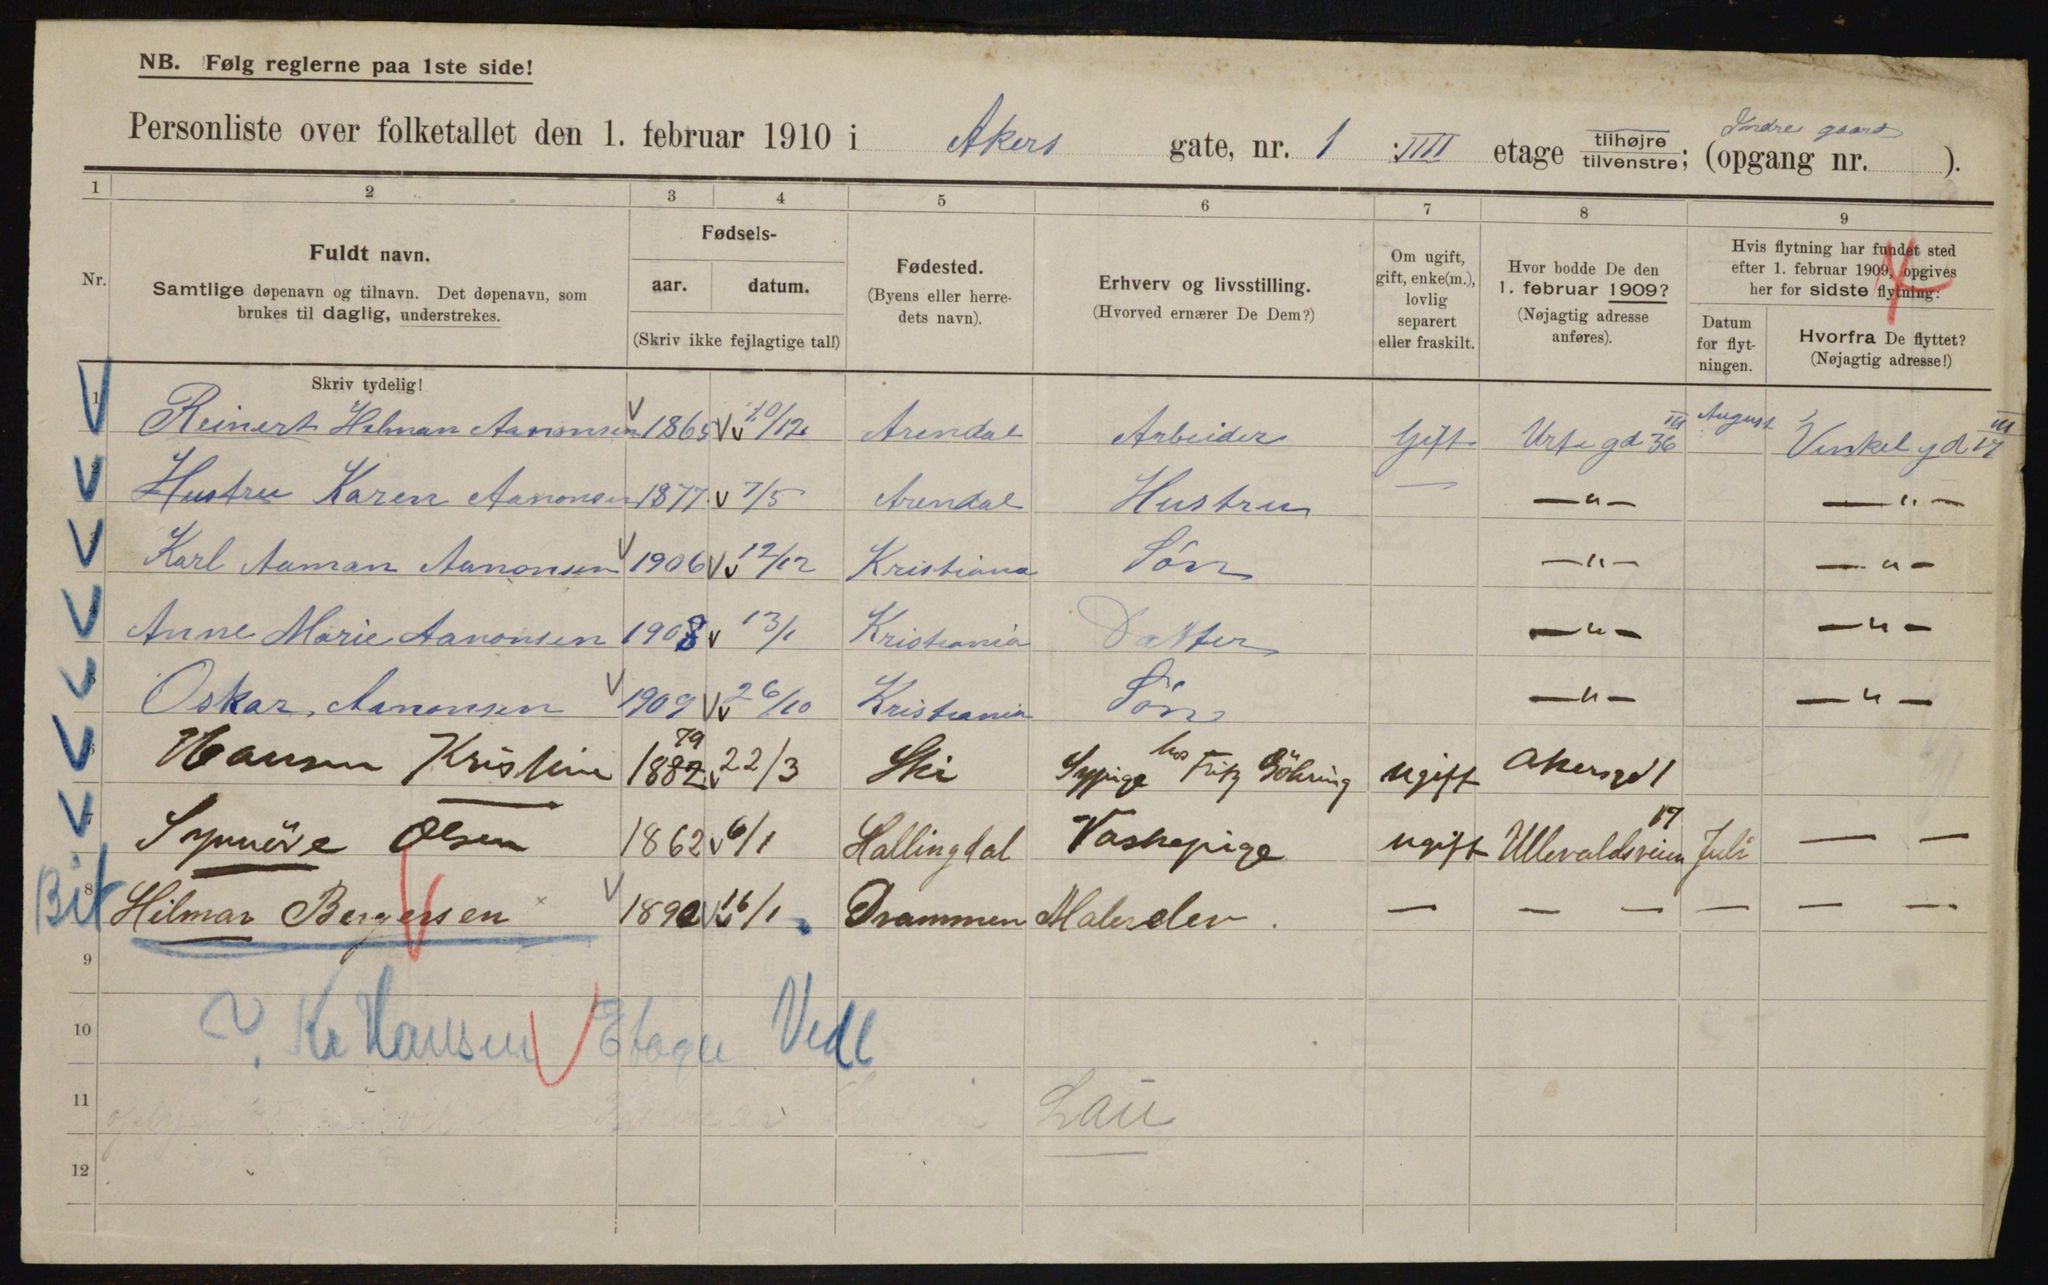 NB. Følg reglerne paa 1ste side!
Personliste over folketallet den 1. februar 1910 i Akers gate, nr. 1 : IIII etage tilhøjre tilvenstre; (opgang nr. Indre gaard ).
1 2 3 4 5 6 7 8 9
Nr. Fuldt navn. Samtlige døpenavn og tilnavn. Det døpenavn, som brukes til daglig, understrekes.
Skriv tydelig!
Fødsels- aar. datum. (Skriv ikke fejlagtige tal!)
Fødested. (Byens eller herredets navn).
Erhverv og livsstilling. (Hvorved ernærer De Dem?)
Om ugift, gift, enke(m.), lovlig separert eller fraskilt.
Hvor bodde De den 1. februar 1909? (Nøjagtig adresse anføres).
Hvis flytning har fundet sted efter 1. februar 1909, opgives her for sidste flytning:
Datum for flytningen.
Hvorfra De flyttet? (Nøjagtig adresse!)
1 Reinert Helman Aanonsen 1865 10/12 Arendal Arbeider Gift Urte gd 36 III August Vinkel gd 17 III
2 Hustru Karen Aanonsen 1877 7/5 Arendal Hustru — —"— —"—
3 Karl Aaman Aanonsen 1906 12/12 Kristiana Søn —"— —"—
4 Anne Marie Aanonsen 1908 13/1 Kristiania Datter —"— —"—
5 Oskar Aanonsen 1909 26/10 Kristiania Søn —"— —"—
6 Hansen Kristine 1882 79 22/3 Ski Sypige hos Fritz Göhring ugift Akersgd 1
7 Synnöve Olsen 1862 6/1 Hallingdal Vaskepige ugift Ullevaldsveien 17 Juli — —
Bil 8 Hilmar Bergersen 1890 16/1 Drammen Malerelev. — — — — — —
9
10 V. Kr Hansen Etage Vedl
11 Lau
12